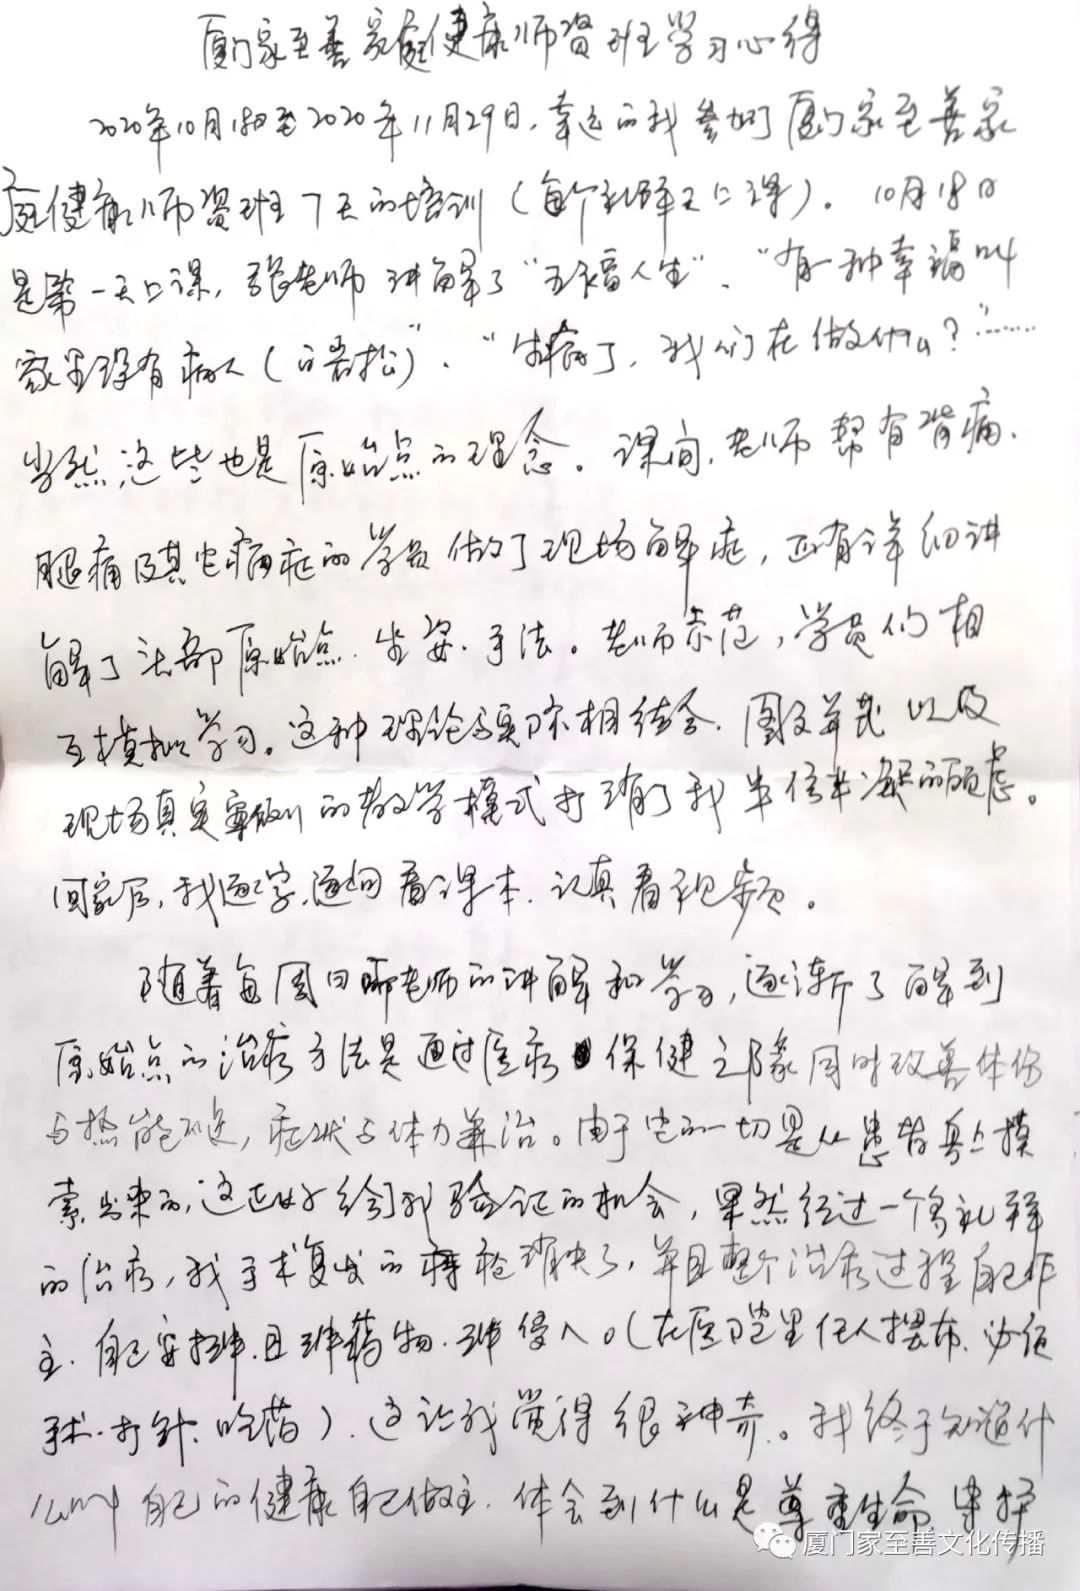 厦门家至善家庭健康师资班学习心得
2020年10月18日至2020年11月29日,幸运的我参加了厦门家至善家
庭健康师资班7天的培训(每个礼拜天上课)。10月18日
是第一天上课,张老师讲解了“五福人生”、“有一种幸福叫
家里没有病人(口语松)”、“生病了,我们在做什么?”……
当然,这些也是原始点的理念。课间,老师帮有背痛、
腿痛及其它病症的学员做了现场解症,还有详细讲
解了头部原始点、坐姿、手法。老师示范,学员们相
互模拟学习。这种理论与实际相结合、图文并茂以及
现场真实案例的教学模式打消了我半信半疑的顾虑。
回家后,我逐字逐句看课本、认真看视频。
随着每周日听老师的讲解和学习,逐渐了解到
原始点的治疗方法是通过医疗 保健之缘同时改善体伤
与热能不足,症状与体力兼治。由于它的一切是从患者身上摸
索出来的,这正好给了我验证的机会,果然经过一个多礼拜
的治疗,我手术复发的 疮消失了,并且整个治疗过程自己作
主、自己安排、且非药物、非侵入。(在医院里任人摆布、必须
手术、打针、吃药)、这让我觉得很神奇。我终于知道什
么叫自己的健康自己做主、体会到什么是尊重生命、守护
厦门家至善文化传播